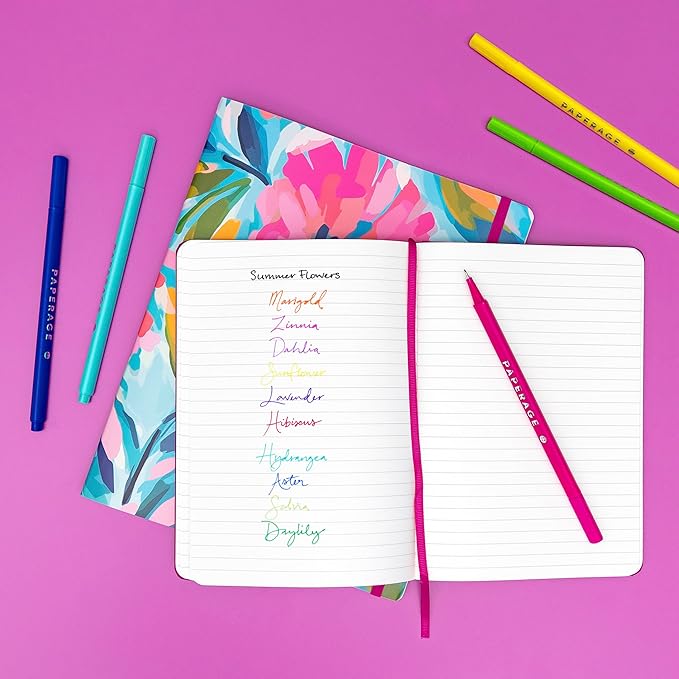 Summer Flowers
Marigold
Zinnia
Dahlia
Sunflower
Lavender
Hibiscus
Hydrangea
Aster
Salvia
Daylily
PAPERAGE
PAPERAGE
PAPERAGE
PAPERAGE
PAPERAGE